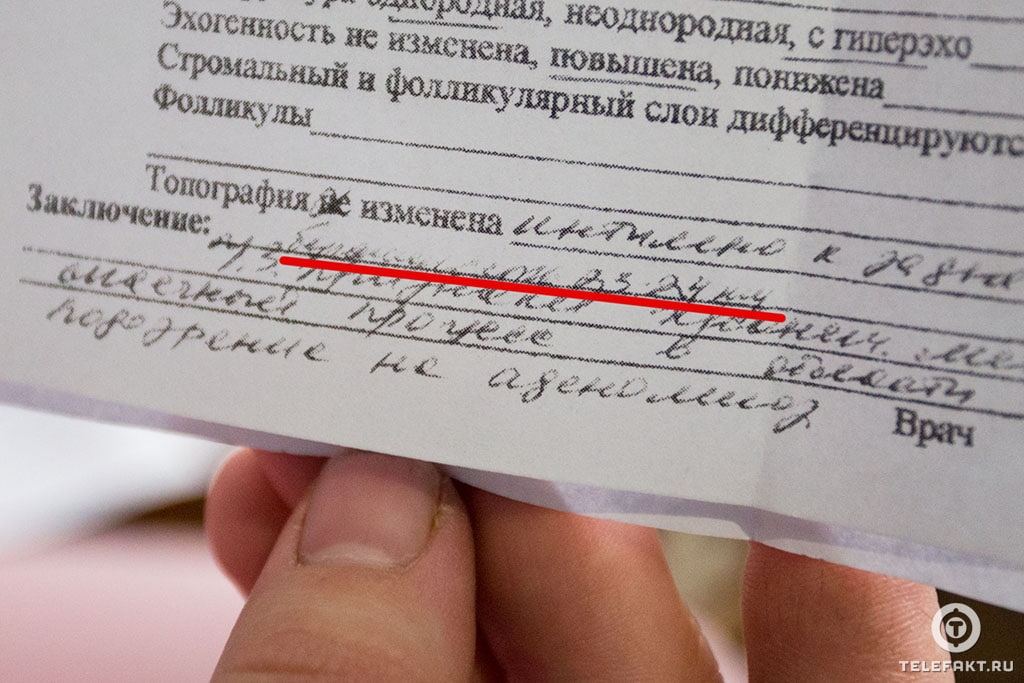 однородная, неоднородная, с гиперэхо
Эхогенность не изменена, повышена, понижена
Стромальный и фолликулярный слои дифференцируются
Фолликулы
Топография не изменена интимно к задне
Заключение: беременности 23-24 нед
признаки хронич.
спаечный процесс в области
подозрение на аденомиоз
Врач
TELEFAKT.RU